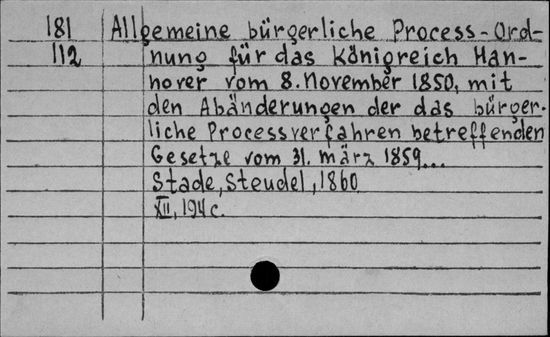 181 Allgemeine bürgerliche Process-Ord-
112 nung für das Königreich Han-
nover vom 8. November 1850, mit
den Abänderungen der das bürger-
liche Processverfahren betreffenden
Gesetze vom 31. März 1859...
Stade, Steudel, 1860
XII, 194 c.